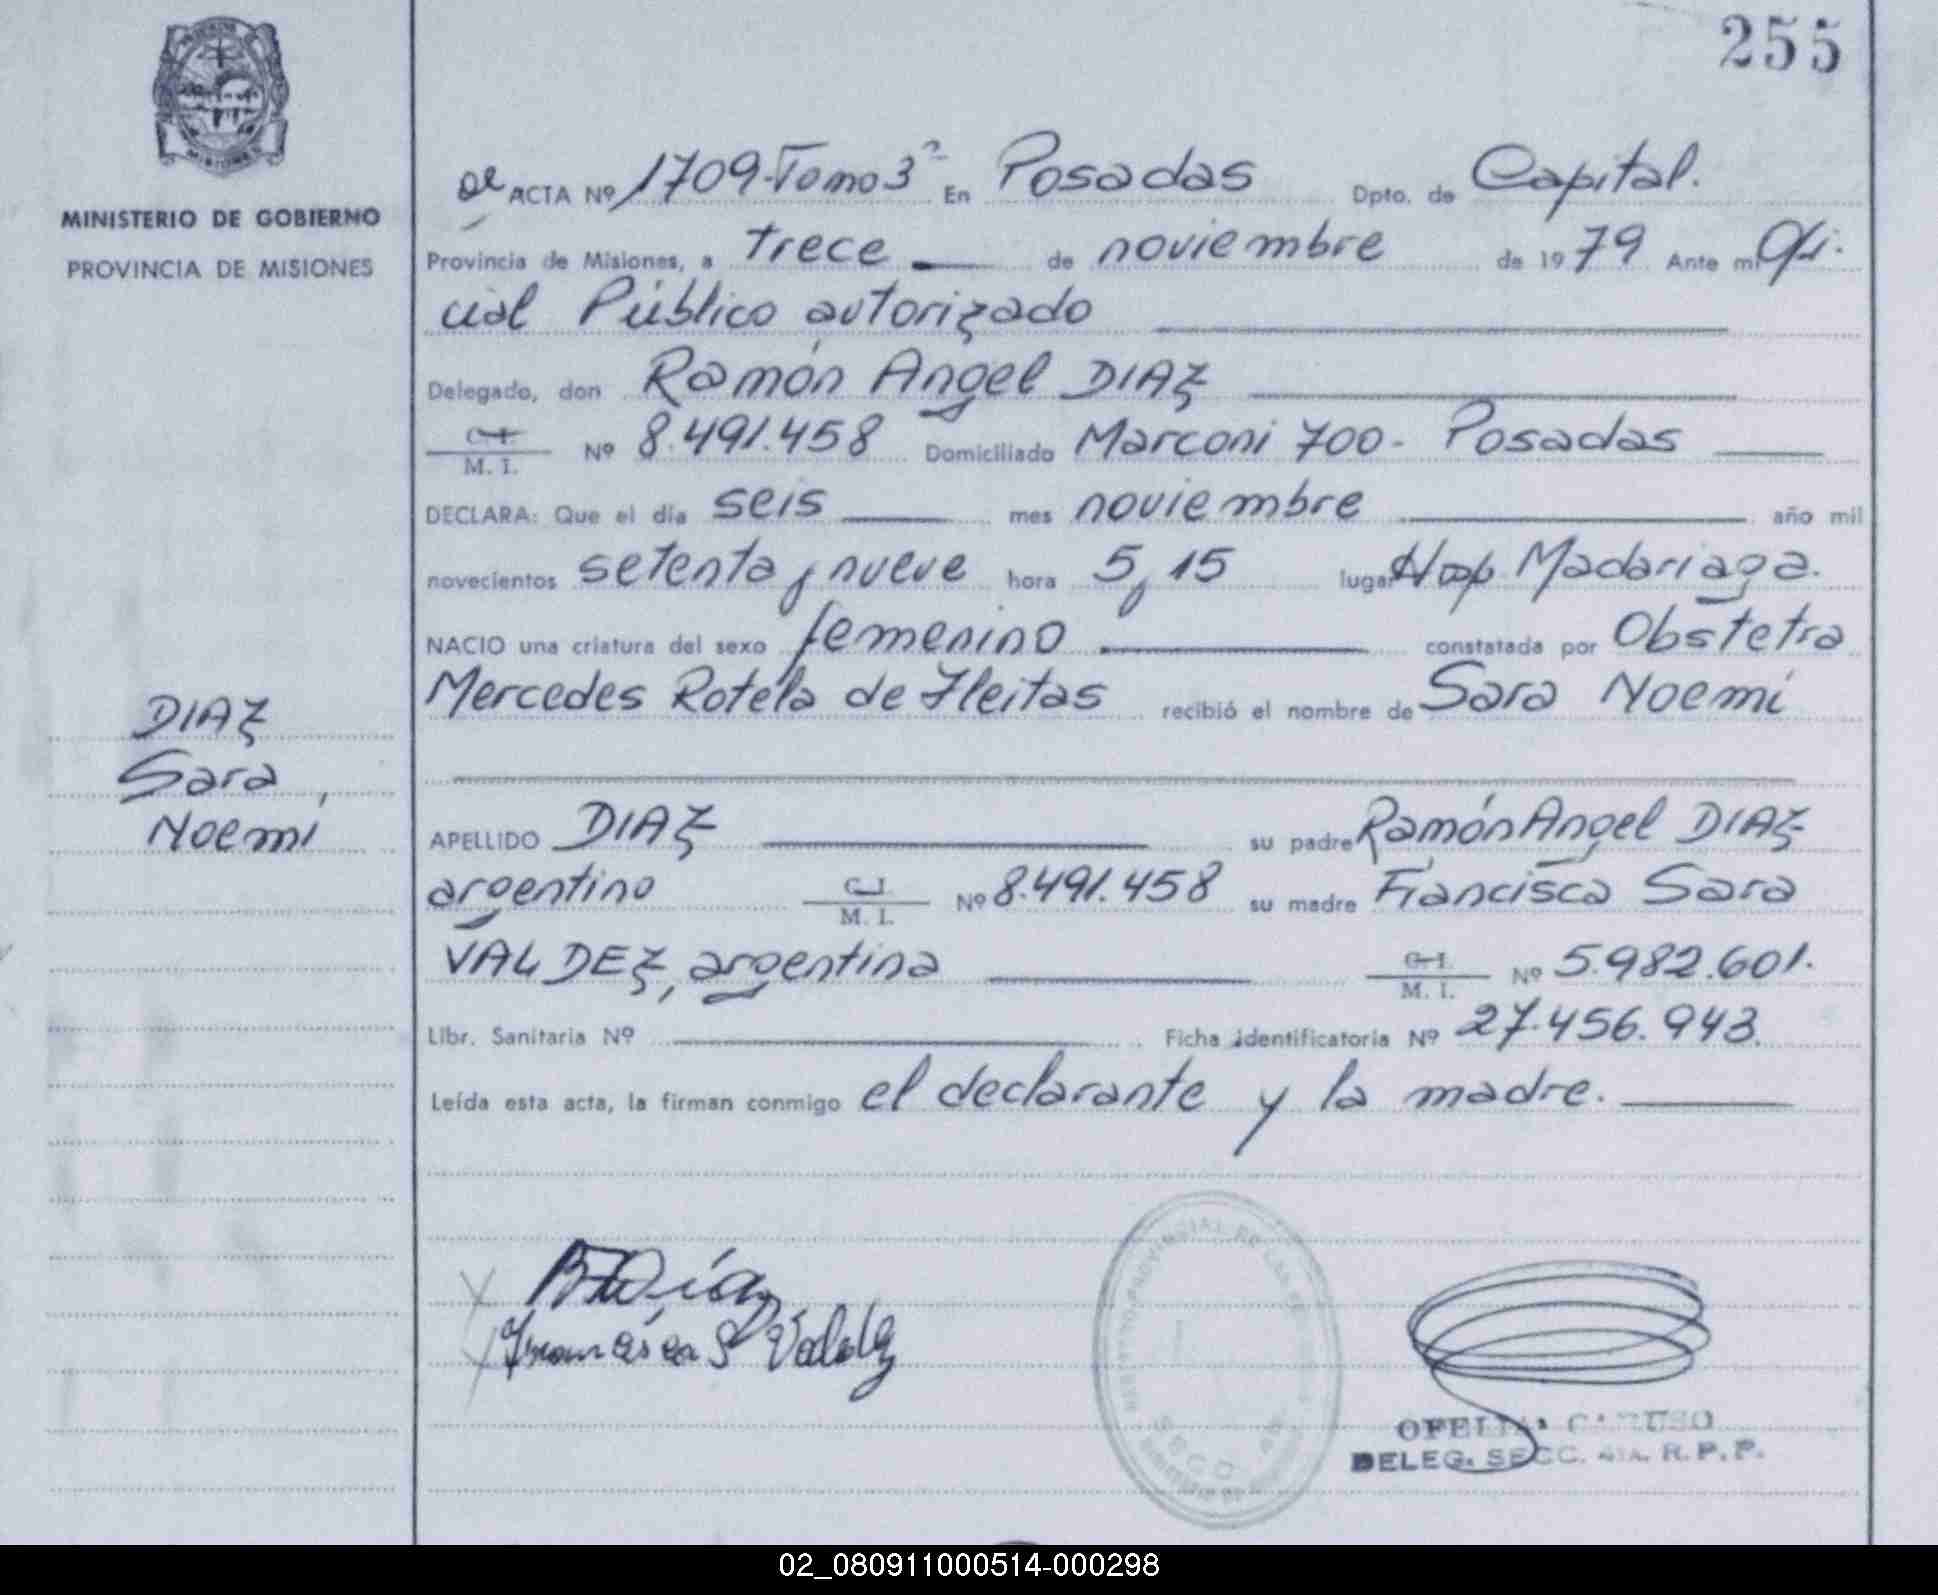 255
MISIONES
MINISTERIO DE GOBIERNO
PROVINCIA DE MISIONES
ACTA Nº 1709-Tomo 3º En Posadas Dpto. de Capital.
Provincia de Misiones, a trece de noviembre de 1979 Ante mi Ofi-
cial Público autorizado
Delegado, don Ramón Angel DIAZ
C. I. M. I. Nº 8.491.458 Domiciliado Marconi 700- Posadas
DECLARA: Que el día seis mes noviembre año mil
novecientos setenta y nueve hora 5,15 lugar Hosp. Madariaga.
NACIO una criatura del sexo femenino constatada por Obstetra
Mercedes Rotela de Fleitas recibió el nombre de Sara Noemí
DIAZ
Sara
Noemí
APELLIDO DIAZ su padre Ramón Angel DIAZ
argentino C. I. M. I. Nº 8.491.458 su madre Francisca Sara
VALDEZ, argentina C. I. M. I. Nº 5.982.601.
Libr. Sanitaria Nº Ficha identificatoria Nº 27.456.943.
Leída esta acta, la firman conmigo el declarante y la madre.
Francisca S Valdez
SECC.
OFELIA CARUSO
DELEG. SECC. 4ta. R.P.P.
02_080911000514-000298